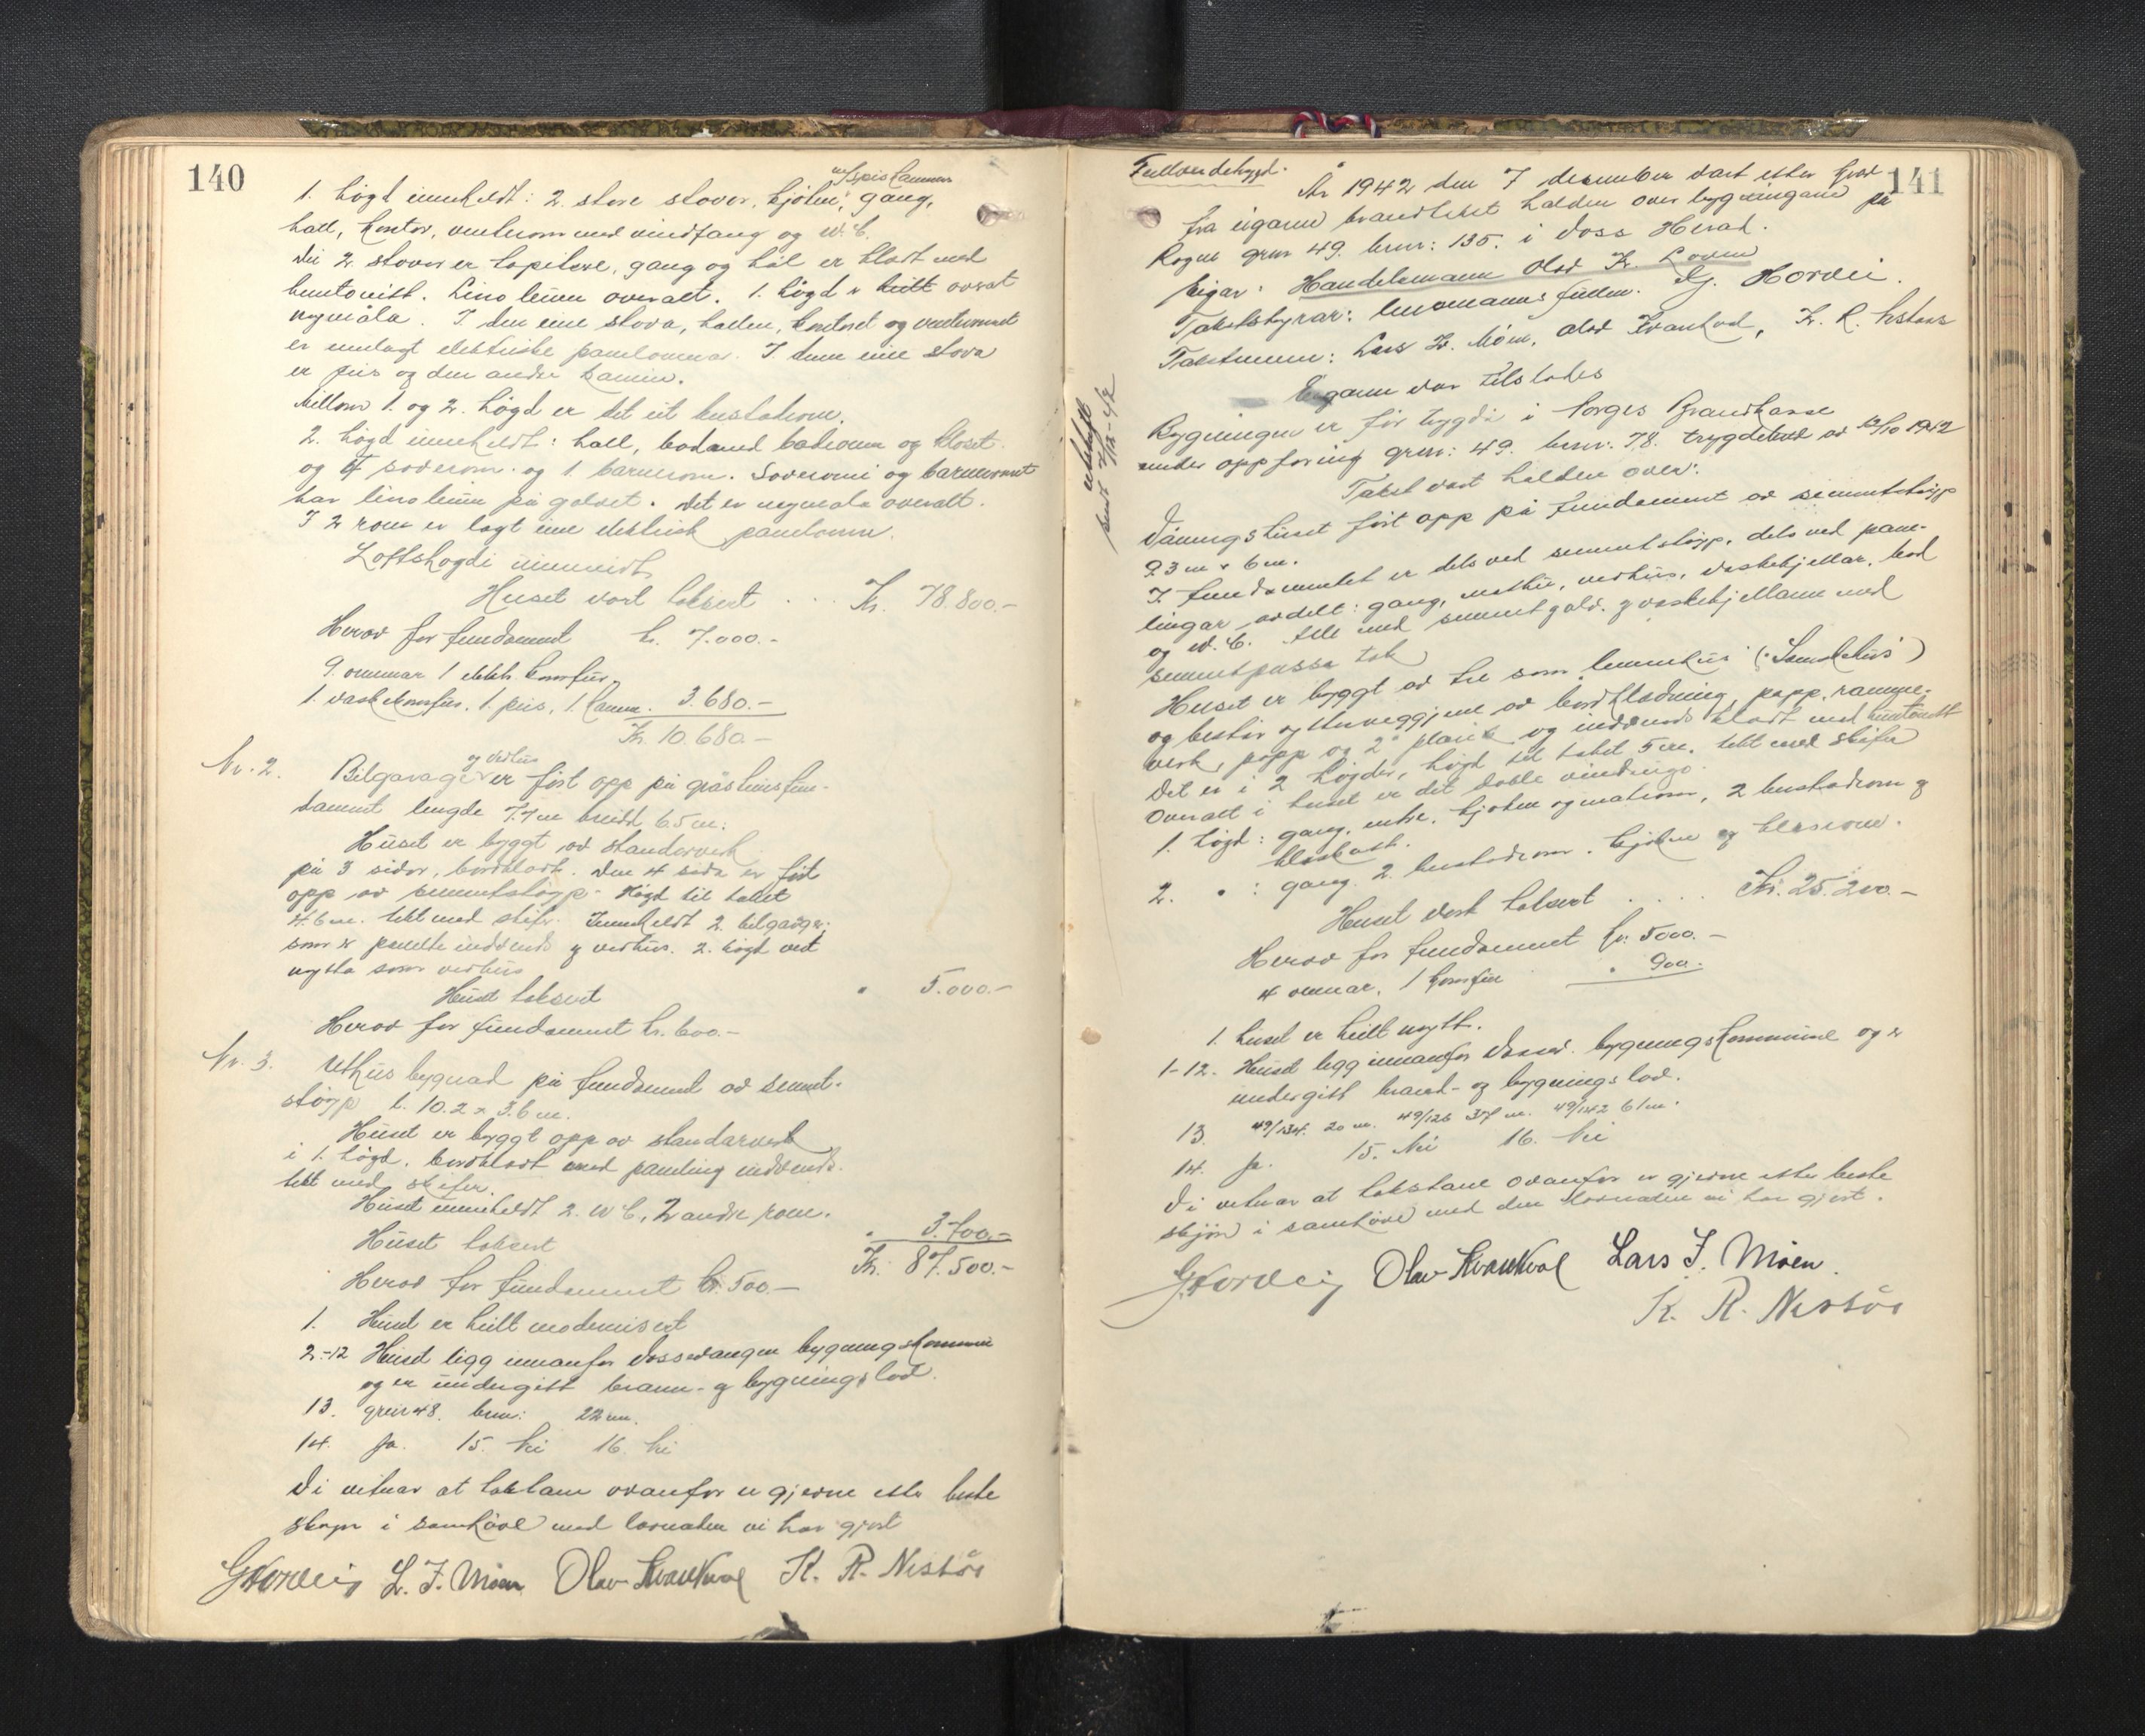 140
m/spiskammer
1. høgd inneheldt: 2. store stover, kjøken, gang,
hall, kontor, venterom med vindfang og W.C.
Dei 2 stover er tapitsere, gang og hall er kledt med
huntonitt. Linoleum overalt. 1. høgd er heilt overalt
nymåla. I den eine stova, hallen, kontoret og venterommet
er innlagt elektriske panelomnar. I den eine stova
er peis og den andre kamin.
Millom 1. og 2. høgd er det eit kustodrom.
2. høgd inneheldt: hall, bad med baderom og kloset
og 4 soverom og 1. barnerom. Soveromi og barnerommet
har linoleum på golvet. Det er nymåla overalt.
I 2 rom er lagt inn elektrisk panelomn.
Loftshøgdi uinnreidt
Huset vart taksert . . . Kr. 78.800.-
Herav for fundament kr. 7.000.-
9. omnar 1 elektr. komfur,
1. vaskekomfur, 1. peis, 1. kamin. 3.680.-
Kr. 10.680.-
Nr. 2. og vedhus
Bilgarage er ført opp på gråsteinsfun-
dament lengde 7.7 m breidd 6.5 m.
Huset er byggt av standerverk
på 3 sidor, bordkledt. Den 4 sida er ført
opp av sementstøyp. Høgd til taket
4.6 m. tekt med skifer. Inneheldt 2. bilgarager,
som er panelte inndvendes og vedhus. 2. høgd vert
nytta som vedhus
Huset taksert " 5.000.-
Herav for fundament kr. 600.-
Nr. 3. Uthusbygnad på fundament av sement-
støyp l. 10.2 x 3.6 m.
Huset er byggt opp av standarverk
i 1. høgd, bordkledt med paneling inndvendes.
tekt med skifer.
Huset inneheldt 2. W.C, 2 andre rom.
Huset taksert " 3.700.-
Kr. 87.500.-
Herav for fundament kr. 500.-
1. Huset er heilt modernisert
2-12 Huset ligg innanfor Vossevangen bygningskommune
og er undergitt brann- og bygningslov.
13. gnr 48. bnr: 22 m.
14. Ja. 15. Nei 16. Nei
Vi vitnar at takstane ovanfor er gjevne etter beste
skjøn i samhøve med lovnaden vi har gjort
G Horvei L. I. Møen Olav Kvankval K. R. Nestås
141
Fullverdetrygd.
År 1942 den 7 desember vart etter krav
fra eigaren brandtakst halden over bygningane på
Rogne gnr 49. bnr: 135. i Voss Herad.
Eigar: Handelsmann Olav K. Lovn
Takststyrar: lensmannsfullm. G. Horvei.
Takstmenn: Lars I. Møen, Olav Kvankval, K. R. Nestaas
Eigaren var tilstades
Bygningen er før trygda i Norges Brandkasse
under oppføring gnr: 49. bnr: 78. trygdebrev av 12/10 1942
Takst vart halden over:
utskrift
sendt 7/12-42
Våningshuset ført opp på fundament av sementstøyp
9.3 m x 6 m.
I fundamentet er dels ved sementstøyp, dels ved pane-
lingar avdelt: gang, matbu, vedhus, vaskekjellar, bad
og W.C. Alle med sementgolv. og vaskekjellaren med
sementpussa tak
Huset er byggt av tre som lemmehus (: Sandehus)
og består ytterveggjene av bordkledning, papp, ramme-
verk, papp og 2" plank og inndvendes kledt med huntonitt
Det er i 2 høgder, høgd til taket 5 m. tekt med skifer
Overalt i huset er det doble vindaugo.
1. høgd: gang, entre, kjøken og matrom, 2 kustodrom og
kleskott.
2. " : gang, 2. kustodrom. kjøken og klesrom.
Huset vart taksert . . . . Kr. 25.200.-
Herav for fundamentet kr. 5000.-
4 omnar, 1 komfur " 900.-
1. huset er heilt nytt.
1-12. Huset ligg innanfor Vossev. bygningskommune og er
undergitt brand- og bygningslov.
13. 49/134. 20 m. 49/126 37 m. 49/142 61 m.
14. Ja. 15. Nei 16. Nei
Vi vitnar at takstane ovanfor er gjevne etter beste
skjøn i samhøve med den lovnaden vi har gjort.
G Horvei Olav Kvankval Lars I. Møen.
K. R. Nestås